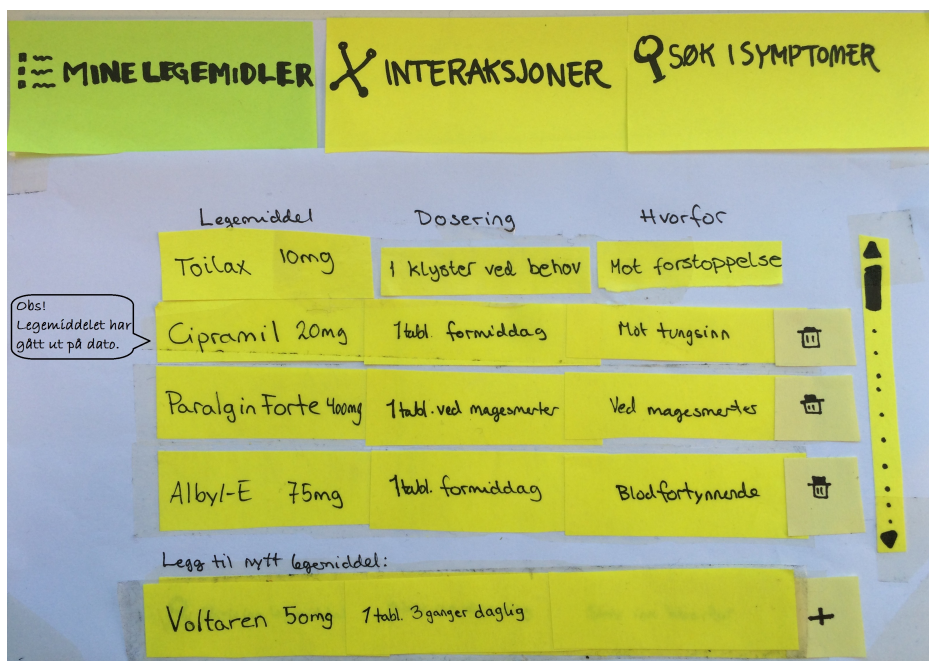 MINE LEGEMIDLER
INTERAKSJONER
SØK I SYMPTOMER
Legemiddel Dosering Hvorfor
Toilax 10mg 1 klyster ved behov Mot forstoppelse
Obs!
Legemiddelet har
gått ut på dato.
Cipramil 20mg 1 tabl. formiddag Mot tungsinn
Paralgin Forte 400mg 1 tabl. ved magesmerter Ved magesmerter
Albyl-E 75mg 1 tabl. formiddag Blodfortynnende
Legg til nytt legemiddel:
Voltaren 50mg 1 tabl. 3 ganger daglig +